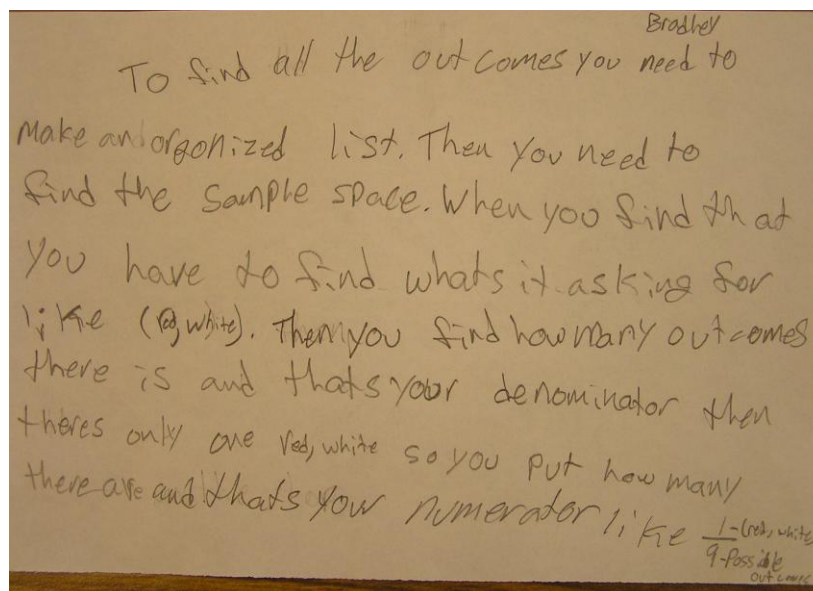 Bradley
To find all the outcomes you need to
make an orgonized list. Then you need to
find the sample space. When you find that
you have to find whats it asking for
like (red, white). Then you find how many outcomes
there is and thats your denominator then
theres only one red, white so you put how many
there are and thats your numerator like 1-(red, white)
9-Possible
outcomes